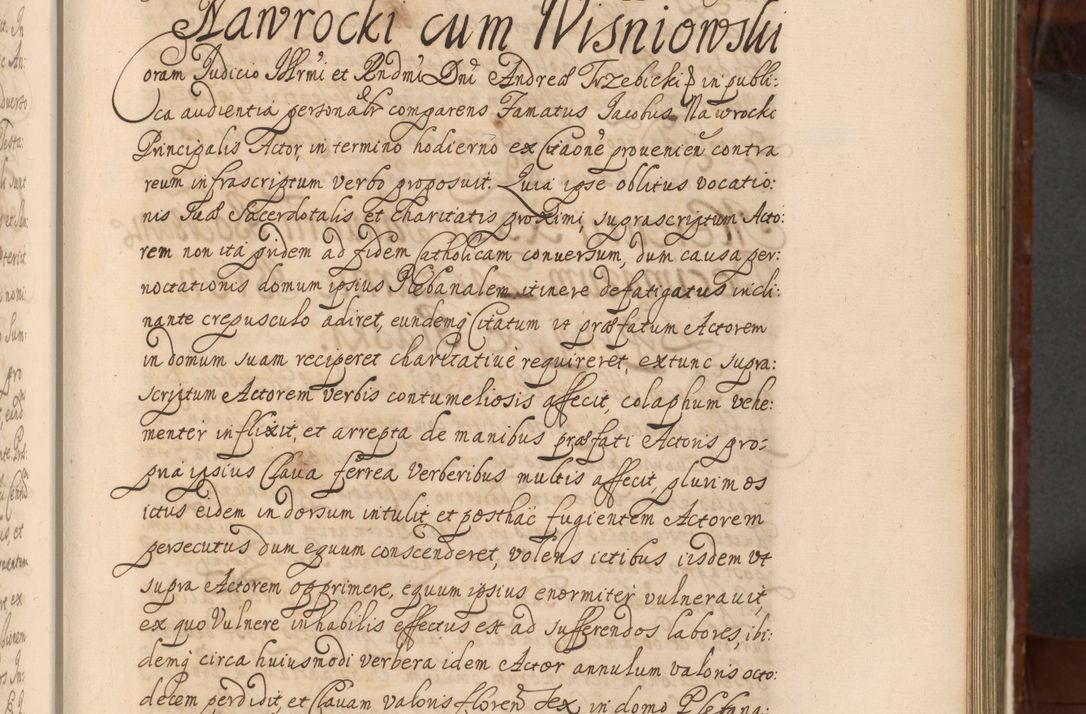 Nawrocki cum Wisniowski
Coram Judicio Illrmi et Rndmi Dni Andreæ Trzebicki in publi:
ca audientia personalr comparens Famatus Jacobus Nawrocki
Principalis Actor, in termino hodierno ex Citaone provenien contra
reum infrascriptum verbo proposuit. Quia ipse oblitus vocatio:
nis suæ Sacerdotalis et charitatis proximi, suprascriptum Acto:
rem non ita pridem ad fidem Catholicam conversum, dum causa per:
noctationis domum ipsius Plebanalem itinere defatigatus incli:
nante crepusculo adiret, eundemq Citatum ut præfatum Actorem
in domum suam reciperet charitative requireret, extunc supra:
scriptum Actorem verbis contumeliosis affecit, colaphum vehe:
menter inflixit, et arrepta de manibus præfati Actoris pro:
pria ipsius Clava ferrea verberibus multis affecit, plurimos
ictus eidem in dorsum intulit et posthac fugientem Actorem
persecutus dum equum conscenderet, volens ictibus iisdem ut
supra Actorem opprimere, equum ipsius enormiter vulneravit,
ex quo Vulnere inhabilis effectus est ad sufferendos labores, ibi:
demq circa huiusmodi verbera idem Actor annulum valoris octo:
decem perdidit, et Clavam valoris floren sex in domo Plebana: